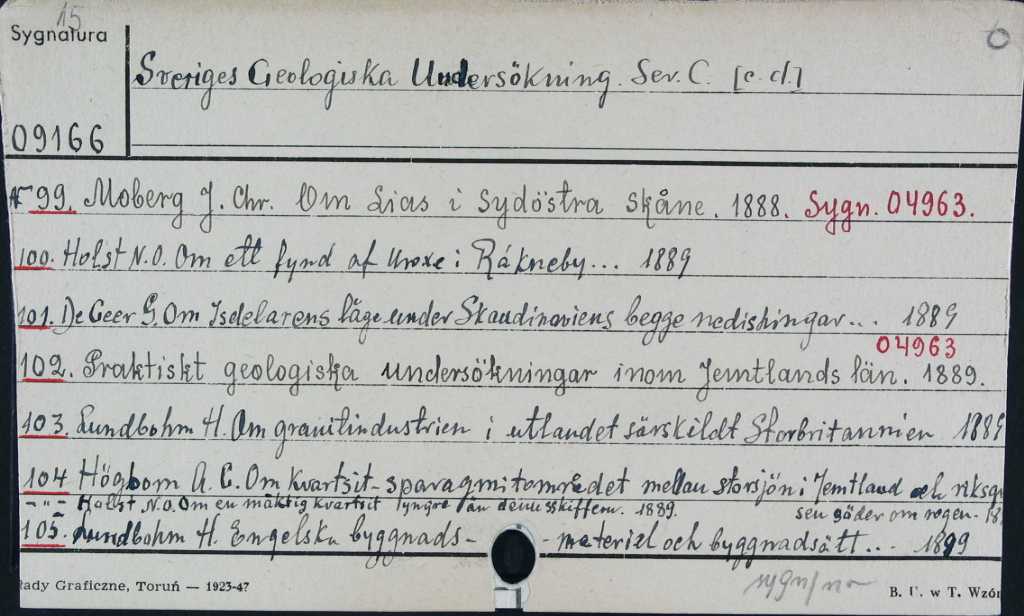 15
Sygnatura
6
Sveriges Geologiska Undersökning. Ser. C. [c. d.]
09166
№ 99. Moberg J. Chr. Om Lias i Sydöstra Skåne. 1888. Sygn. 04963.
100. Holst N.O. Om ett fynd af Uroxe i Råkneby... 1889
101. De Geer G. Om Isdelarens läge under Skandinaviens begge nedisningar... 1889
04963
102. Praktiskt geologiska undersökningar inom Jemtlands län. 1889.
103. Lundbohm H. Om granitindustrien i utlandet särskildt Storbritannien 1889
104 Högbom A. G. Om kvartsit-sparagmitområdet mellan storsjön i Jemtland och riksgr
- " - Holst N.O. Om en mäktig kvartsit yngre än denusskiffern. 1889.
sen söder om rogen. 18
105. Lundbohm H. Engelska byggnads- - material och byggnadsätt... 1899
łady Graficzne, Toruń — 1923-47
sygn/no
B. U. w T. Wzór